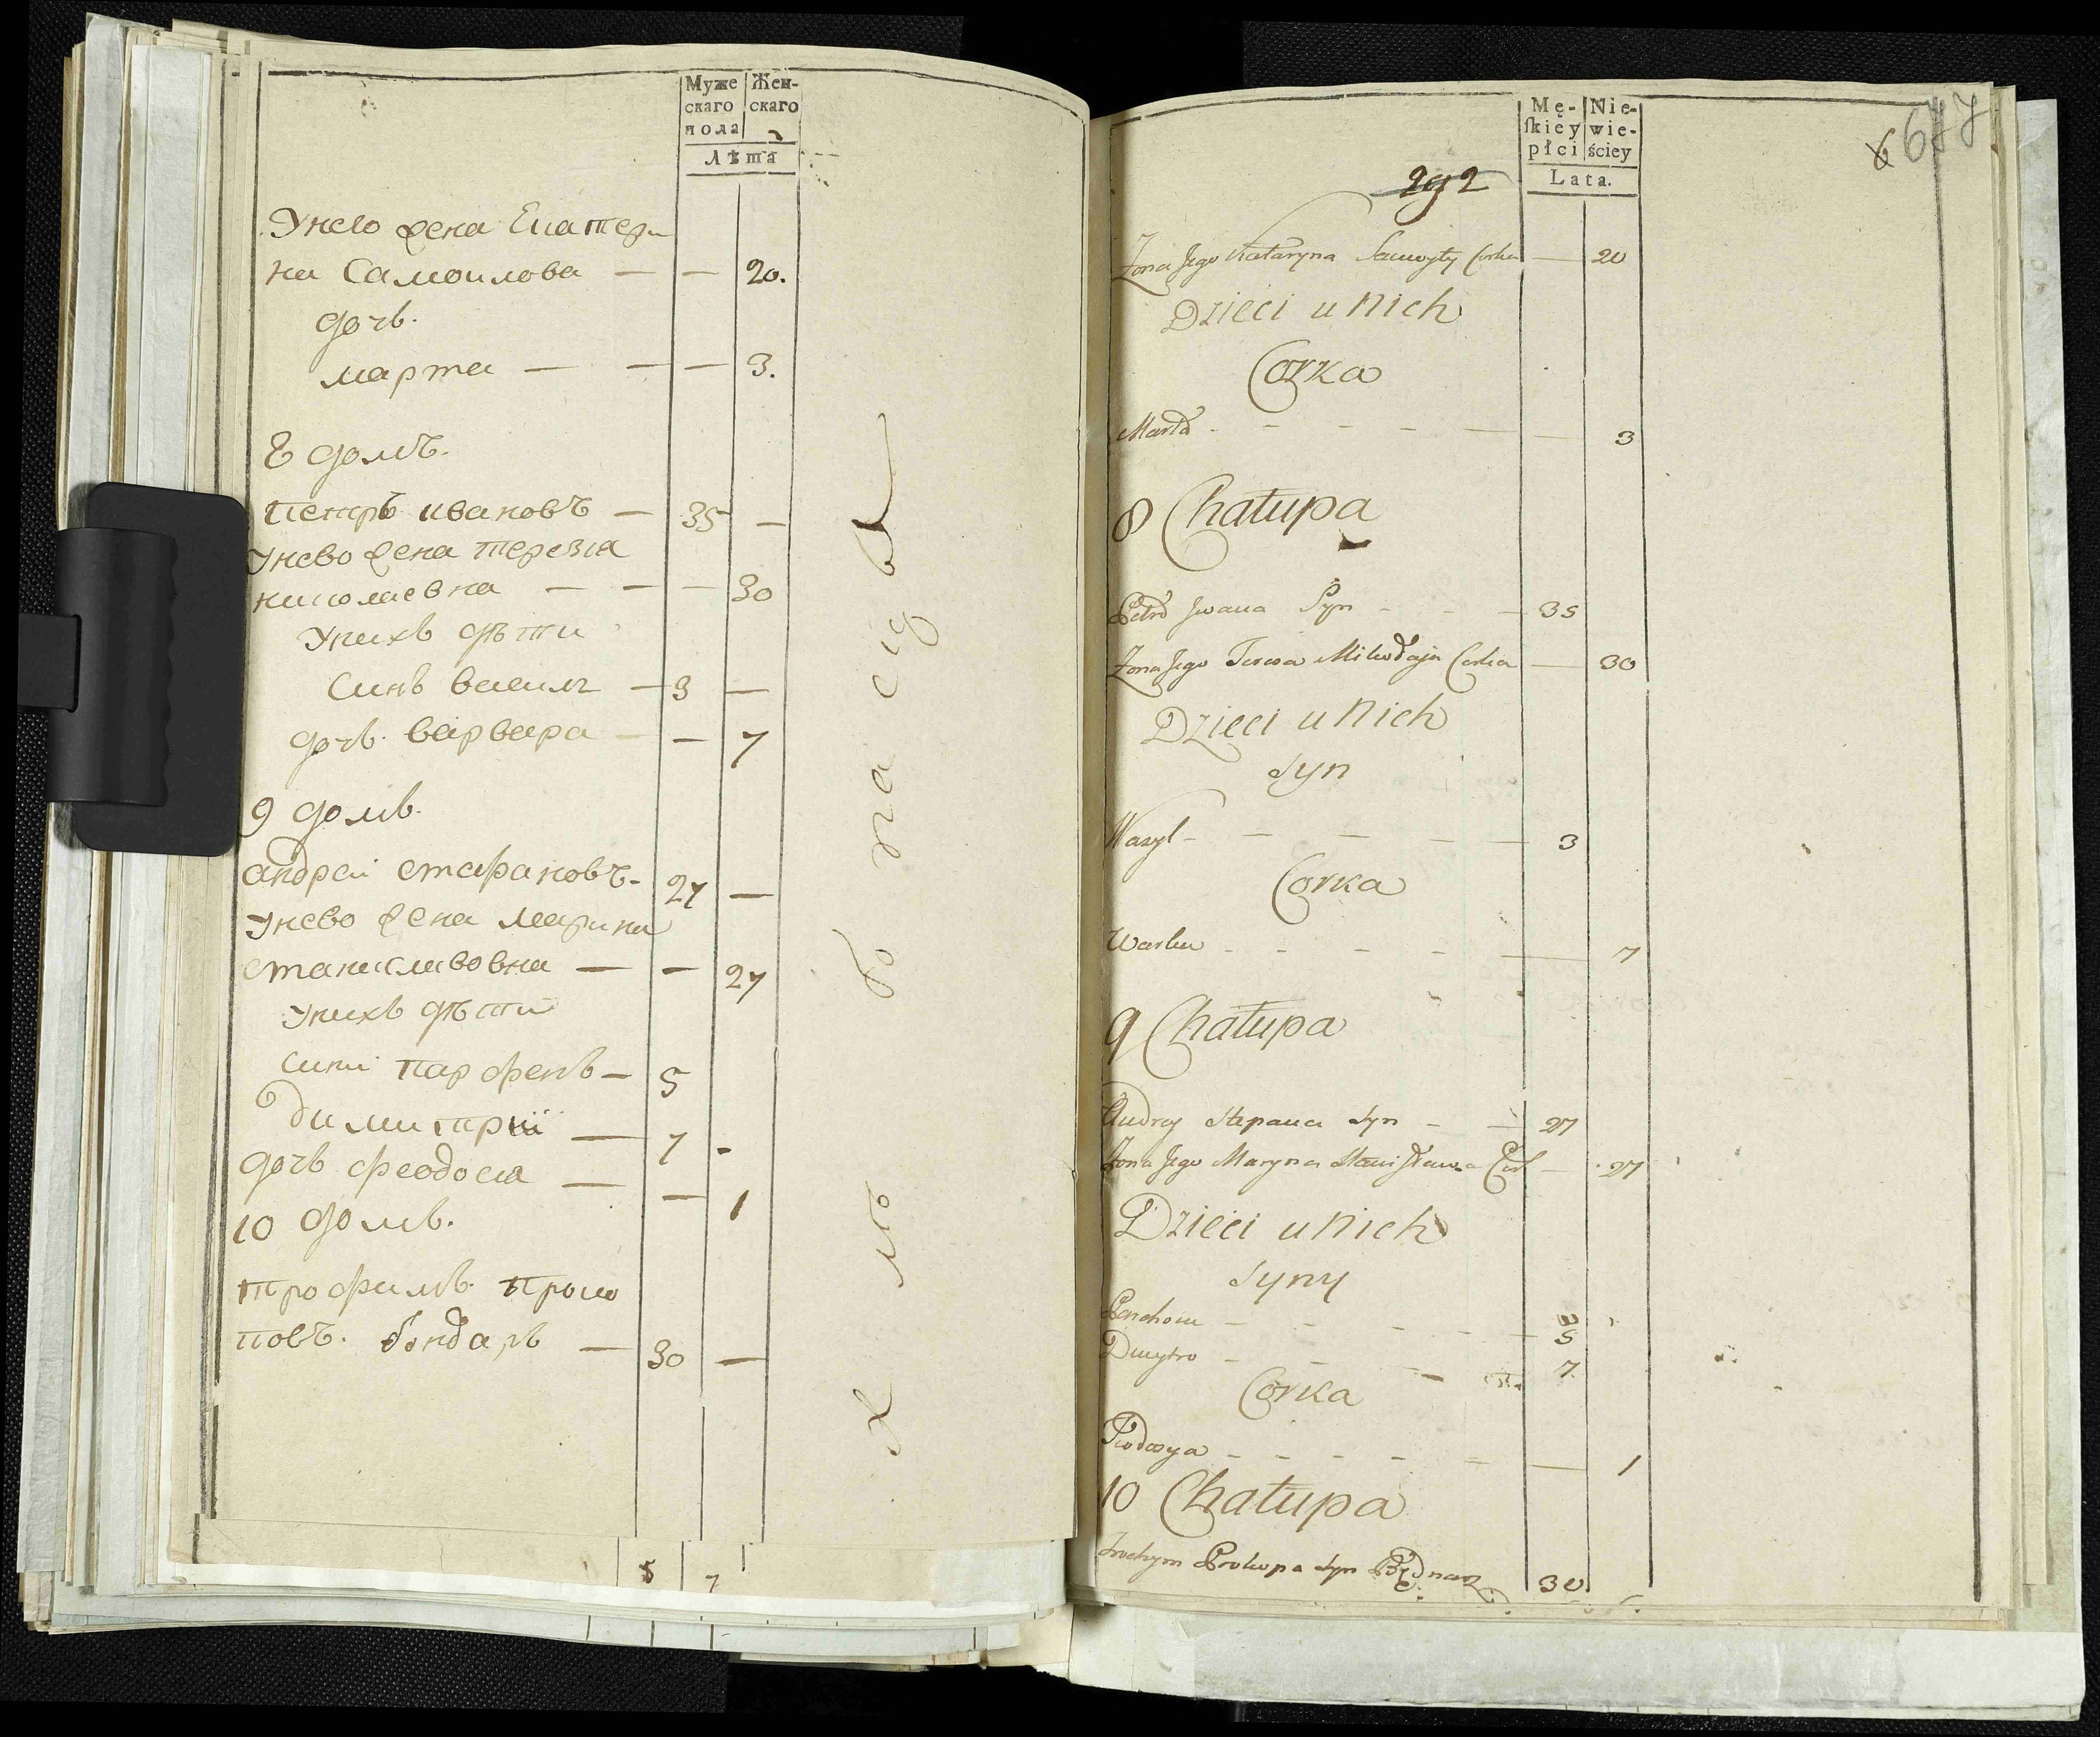 Муже Жен-
скаго скаго
пола
Лѣта
Унего жена Екатери
на Самоилова — — 20.
дочь.
марта — — — 3.
8 домъ.
Петръ ивановъ — 35 —
Унево жена терезія
николаевна — — — 30
Унихъ дѣти
Синъ василъ — 3 —
дочь варвара — — 7
9 домъ.
андрей стефановъ — 27 —
Унево жена марина
станиславовна — — 27
Унихъ дѣти
сини парфенъ — 5
димитрій — 7 -
дочь феодосія — — 1
10 домъ.
трофимъ прокo
повъ. бондаръ — 30 —
5 7
Mę- Nie-
ſkiéy wie-
płci ściey
Lata.
292
6 677
Zona Jego Kataryna Samoyły Corka — 20
Dzieci u Nich
Corka
Marta - - - - — — 3
8 Chałupa
Petro Jwana Syn - - — 35
Zona Jego Teresa Mikołaja Corka — 30
Dzieci u Nich
Syn
Wasyl - — — — — 3
Corka
Warka - - - - - — 7
9 Chałupa
Andrey Stepana Syn - — 27
Zona Jego Maryna Stanisława Cor — 27
Dzieci u Nich
Syny
Parchom - - - - — 5
Dmytro - - - — 7
Corka
Teodosya - - - - - — 1
10 Chałupa
Trochym Prokopa Syn Bednarz 30